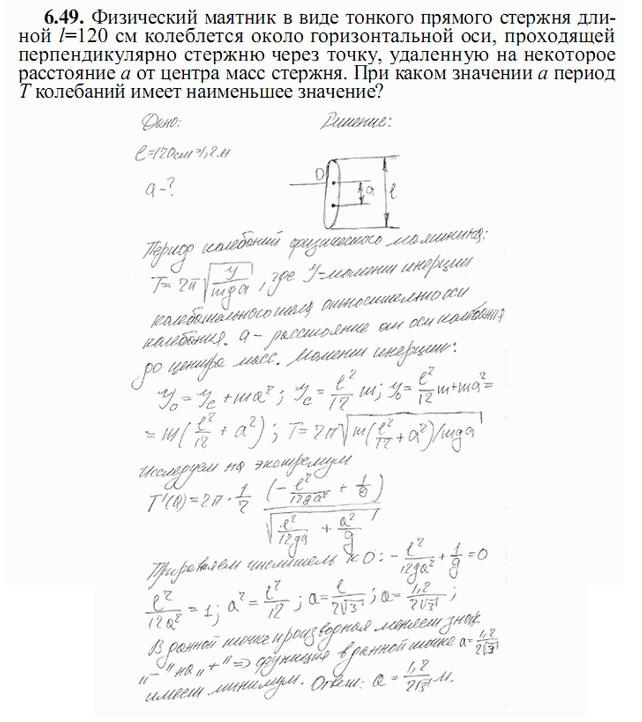 6.49. Физический маятник в виде тонкого прямого стержня дли-
ной l=120 см колеблется около горизонтальной оси, проходящей
перпендикулярно стержню через точку, удаленную на некоторое
расстояние a от центра масс стержня. При каком значении a период
T колебаний имеет наименьшее значение?
Дано: Решение:
l=120см=1,2м
a-?
O a l
Период колебаний физического маятника:
T=2π√(J/mga), где J=момент инерции
колебательного тела относительно оси
колебания. a - расстояние от оси колебания
до центра масс. Момент инерции:
J₀=J_c+ma²; J_c=l²/12 m; J₀=l²/12 m+ma²=
=m(l²/12+a²); T=2π√(m(l²/12+a²)/mga)
Исследуем на экстремум
T'(a)=2π·1/2 (-l²/12ga²+1/g)/√(l²/12ga+a²/g)
Приравняем числитель к 0: -l²/12ga²+1/g=0
l²/12a²=1; a²=l²/12; a=l/2√3; a=1,2/2√3;
В данной точке производная меняет знак
"-" на "+" => функция в данной точке a=1,2/2√3
имеет минимум. Ответ: a=1,2/2√3 м.